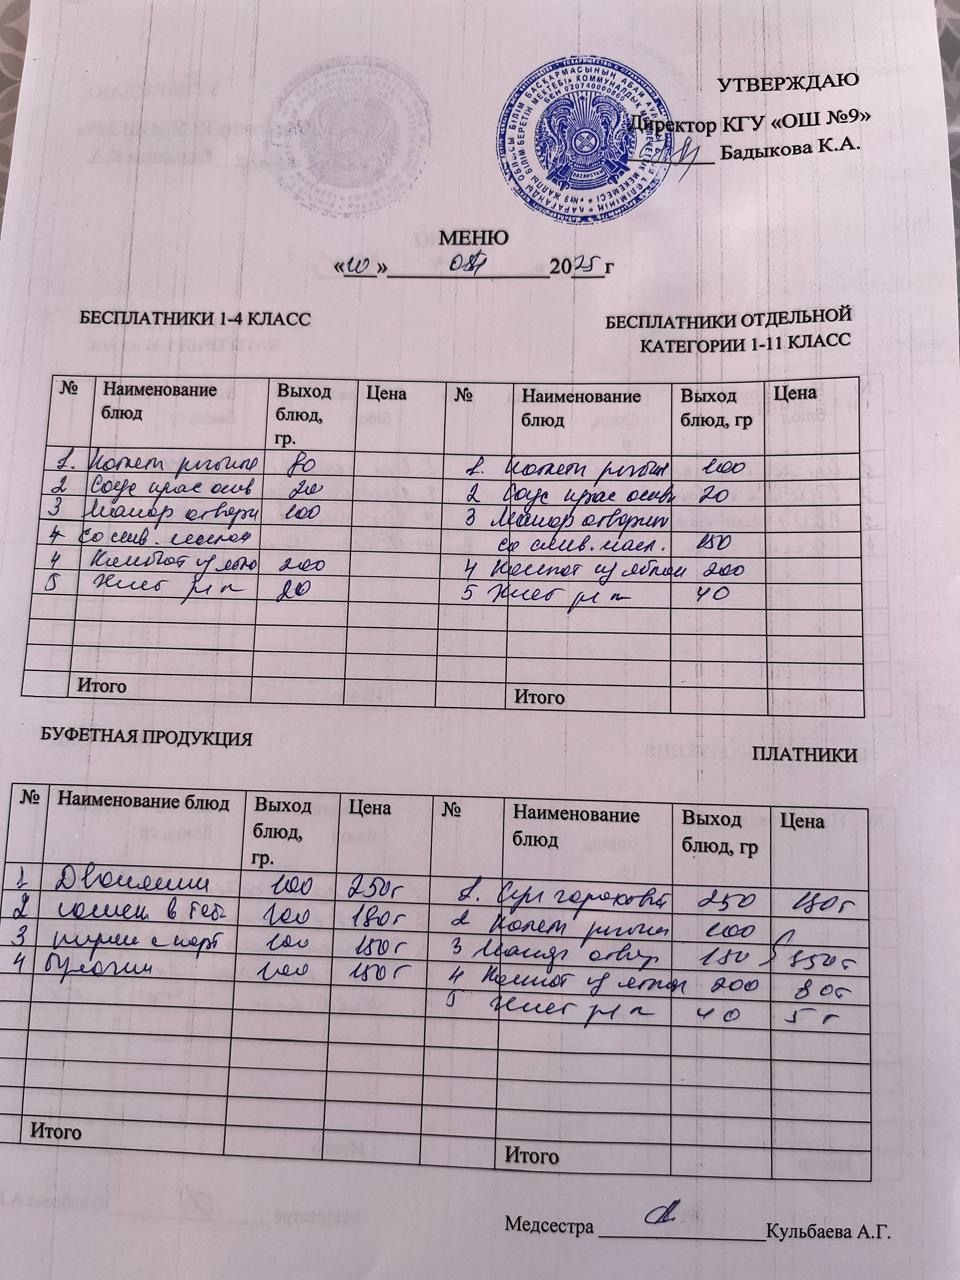 УТВЕРЖДАЮ
Директор КГУ «ОШ №9»
Бадыкова К.А.
МЕНЮ
«10» 2025 г
БЕСПЛАТНИКИ 1-4 КЛАСС
БЕСПЛАТНИКИ ОТДЕЛЬНОЙ
КАТЕГОРИИ 1-11 КЛАСС
№ Наименование блюд Выход блюд, гр. Цена № Наименование блюд Выход блюд, гр Цена
1. Котлет рыбные 80 1. Котлет рыбн 100
2 Соус крас осн 20 2 Соус крас осн 20
3 Макар отварн 100 3 Макар отварн
со слив. маслом со слив. масл. 150
4 Компот из 200 4 Компот из яблок 200
5 Хлеб рж п 20 5 Хлеб рж п 40
Итого Итого
БУФЕТНАЯ ПРОДУКЦИЯ
ПЛАТНИКИ
№ Наименование блюд Выход блюд, гр. Цена № Наименование блюд Выход блюд, гр Цена
1 100 250т 1. Суп горохов 250
2 в тес 100 180т 2 Котлет рыбн 100
3 пирож с карт 100 150т 3 Макар отвар 150
4 Булочки 100 150т 4 Компот из яблок 200 80т
5 Хлеб рж п 40 5т
Итого
Итого
Медсестра Кульбаева А.Г.